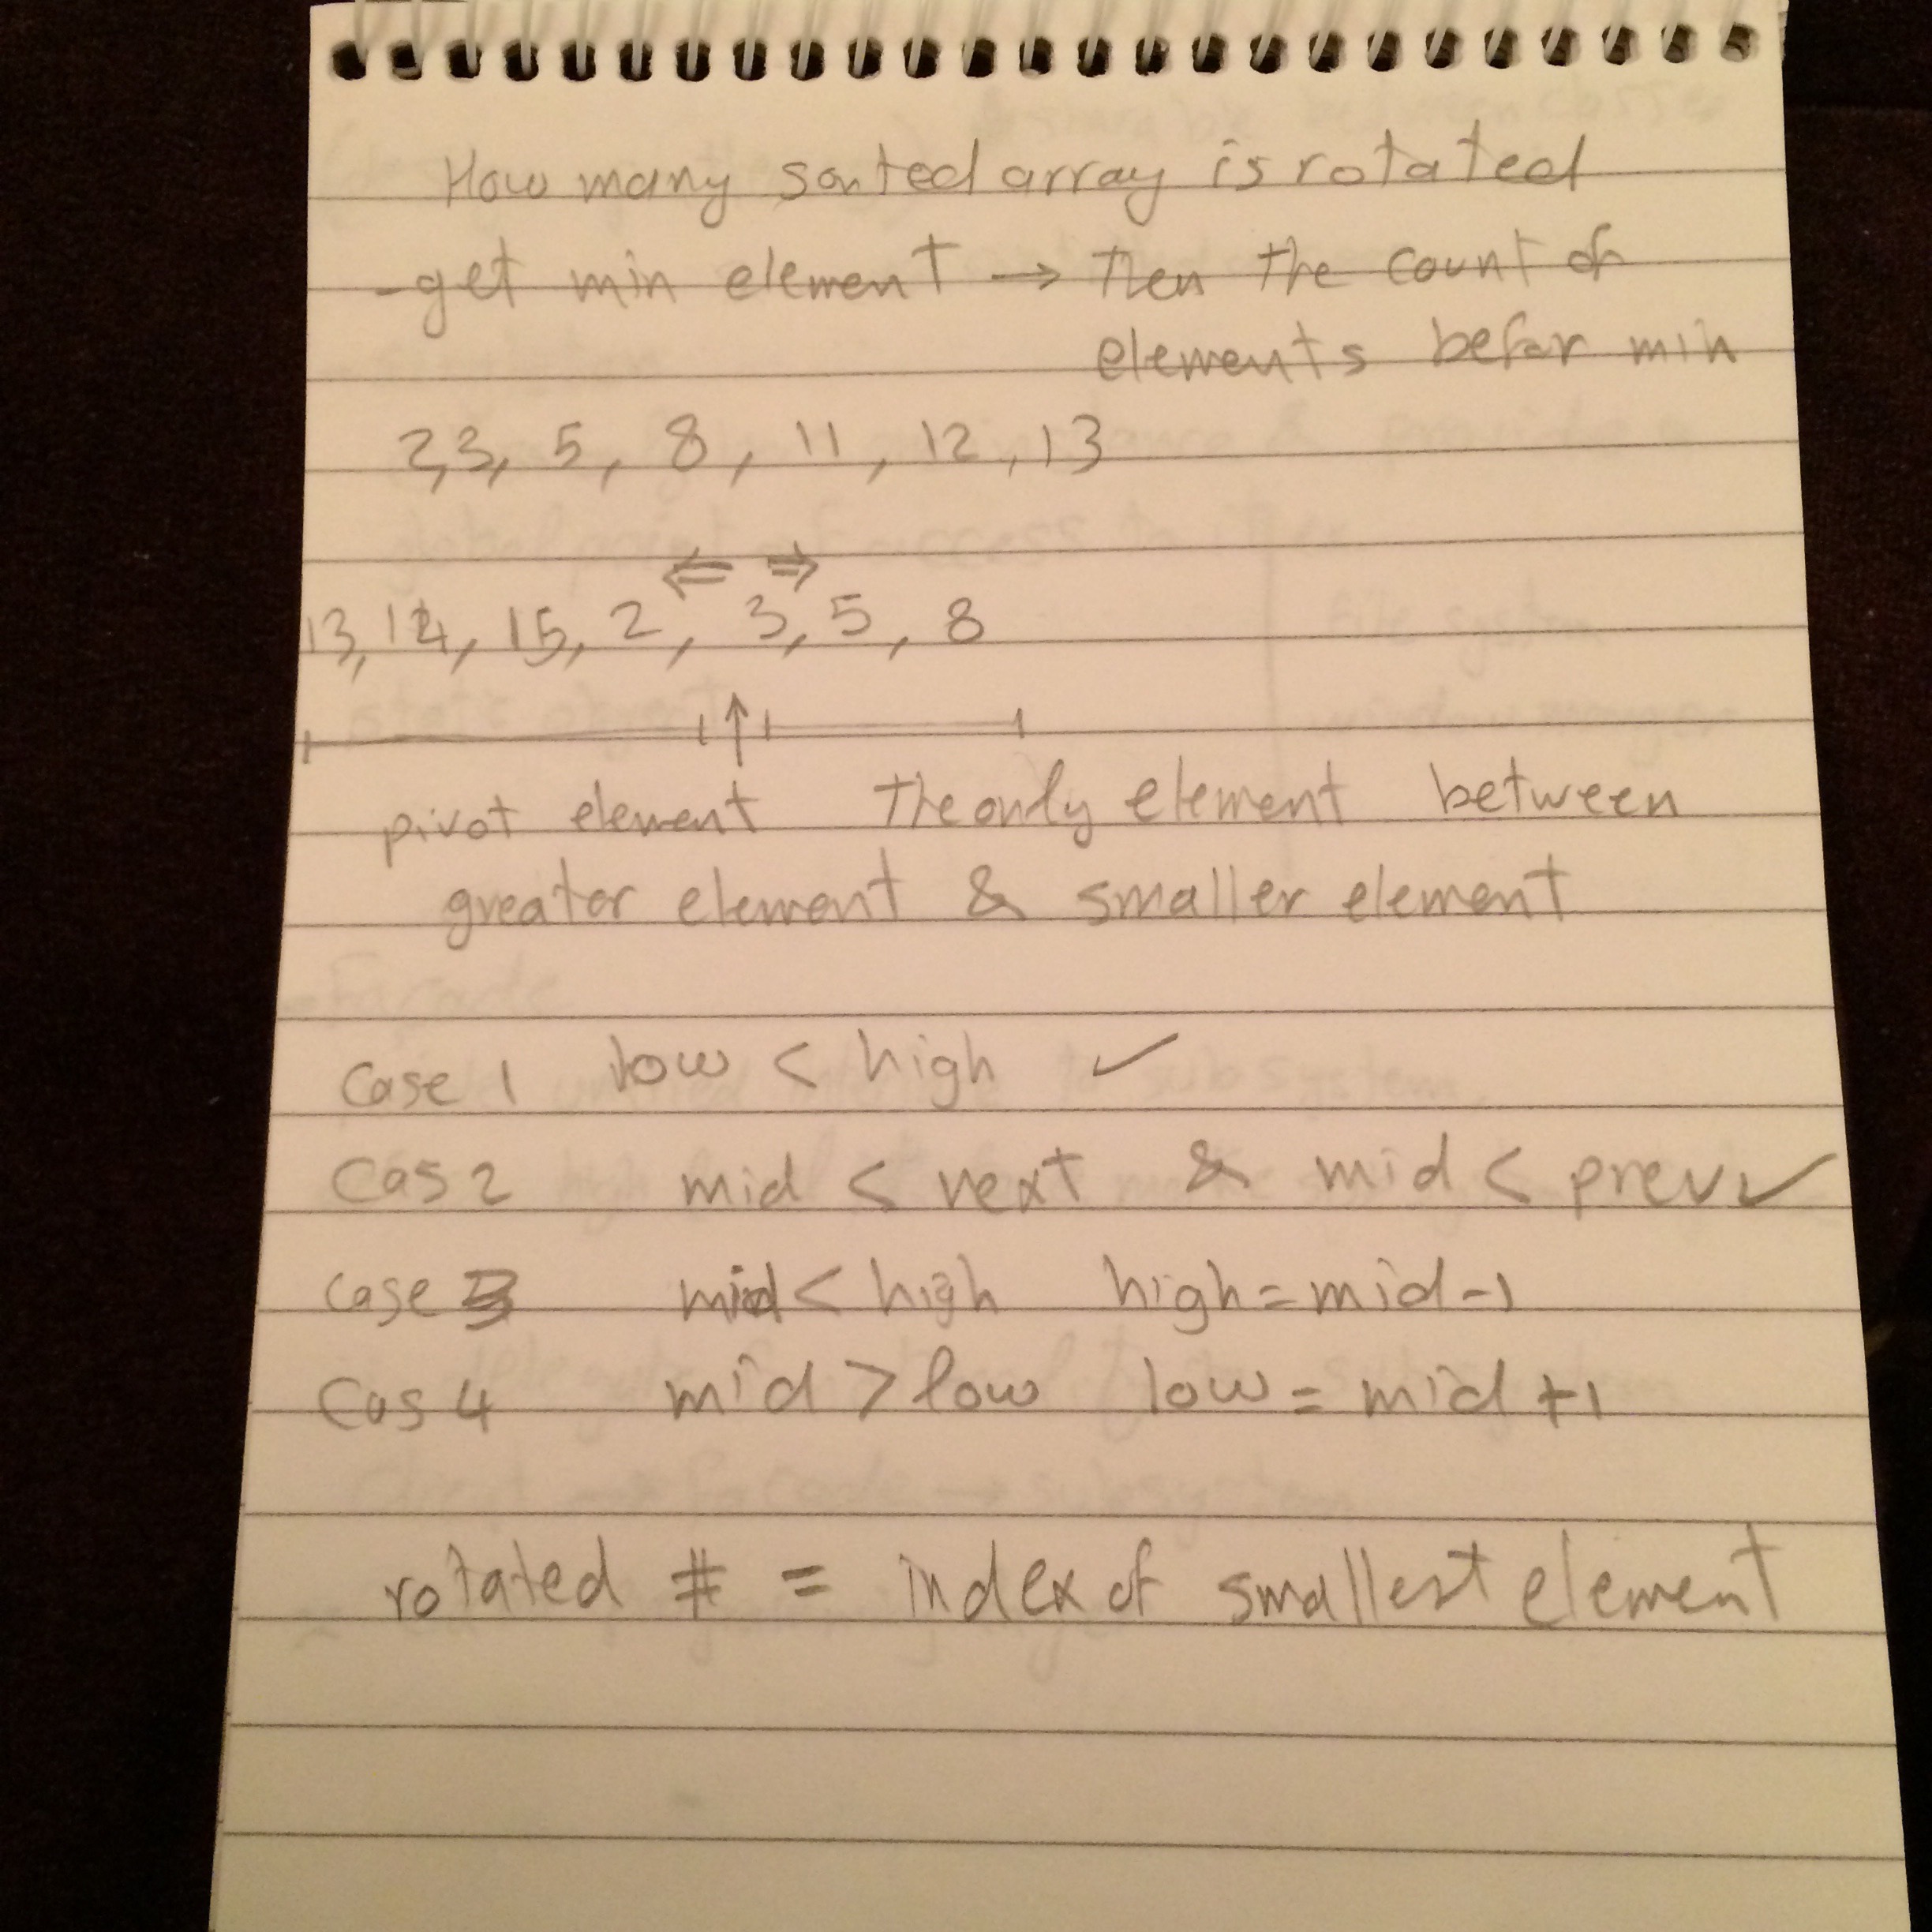 How many sorted array is rotated
-get min element → Then the count of
elements befor min
2,3, 5, 8, 11, 12, 13
⇐ ⇒
13, 14, 15, 2, 3, 5, 8
↑
pivot element The only element between
greater element & smaller element
Case 1 low < high ✓
Cas 2 mid < next & mid < prev ✓
Case 3 mid < high high = mid-1
Cas 4 mid > low low = mid +1
rotated # = index of smallest element